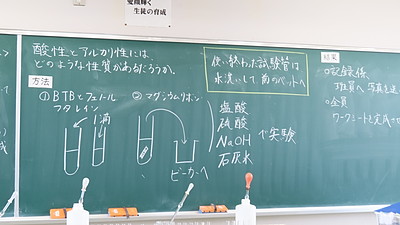 愛顔輝く
生徒の育成
酸性とアルカリ性には、
どのような性質があるだろうか。
方法
①BTBとフェノール
フタレイン
1滴
②マグシウムリボン
ビーカーへ
塩酸
硫酸
NaOH
石灰水
で実験
使い終わった試験管は
水洗いして前のバットへ
結果
○記録係
班員へ写真を送
○全員
ワークシートを完成させ